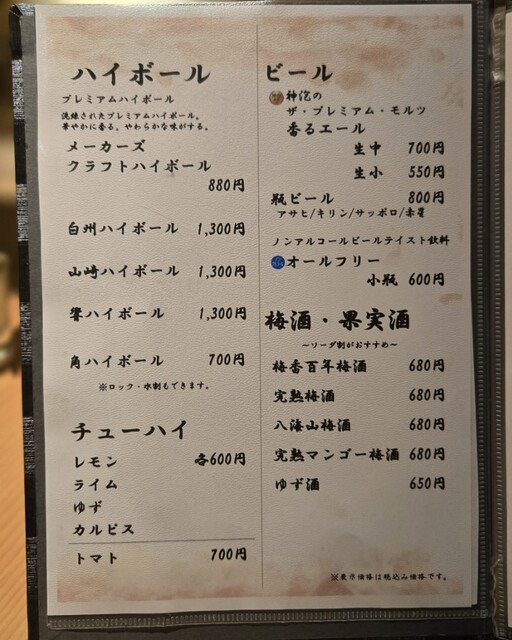 ハイボール
プレミアムハイボール
洗練されたプレミアムハイボール。
華やかに香る、やわらかな味がする。
メーカーズ
クラフトハイボール
880円
白州ハイボール 1,300円
山崎ハイボール 1,300円
響ハイボール 1,300円
角ハイボール 700円
※ロック・水割もできます。
チューハイ
レモン 各600円
ライム
ゆず
カルピス
トマト 700円
ビール
神泡の
ザ・プレミアム・モルツ
香るエール
生中 700円
生小 550円
瓶ビール 800円
アサヒ/キリン/サッポロ/赤星
ノンアルコールビールテイスト飲料
オールフリー
小瓶 600円
梅酒・果実酒
~ソーダ割がおすすめ~
梅香百年梅酒 680円
完熟梅酒 680円
八海山梅酒 680円
完熟マンゴー梅酒 680円
ゆず酒 650円
※表示価格は税込み価格です。